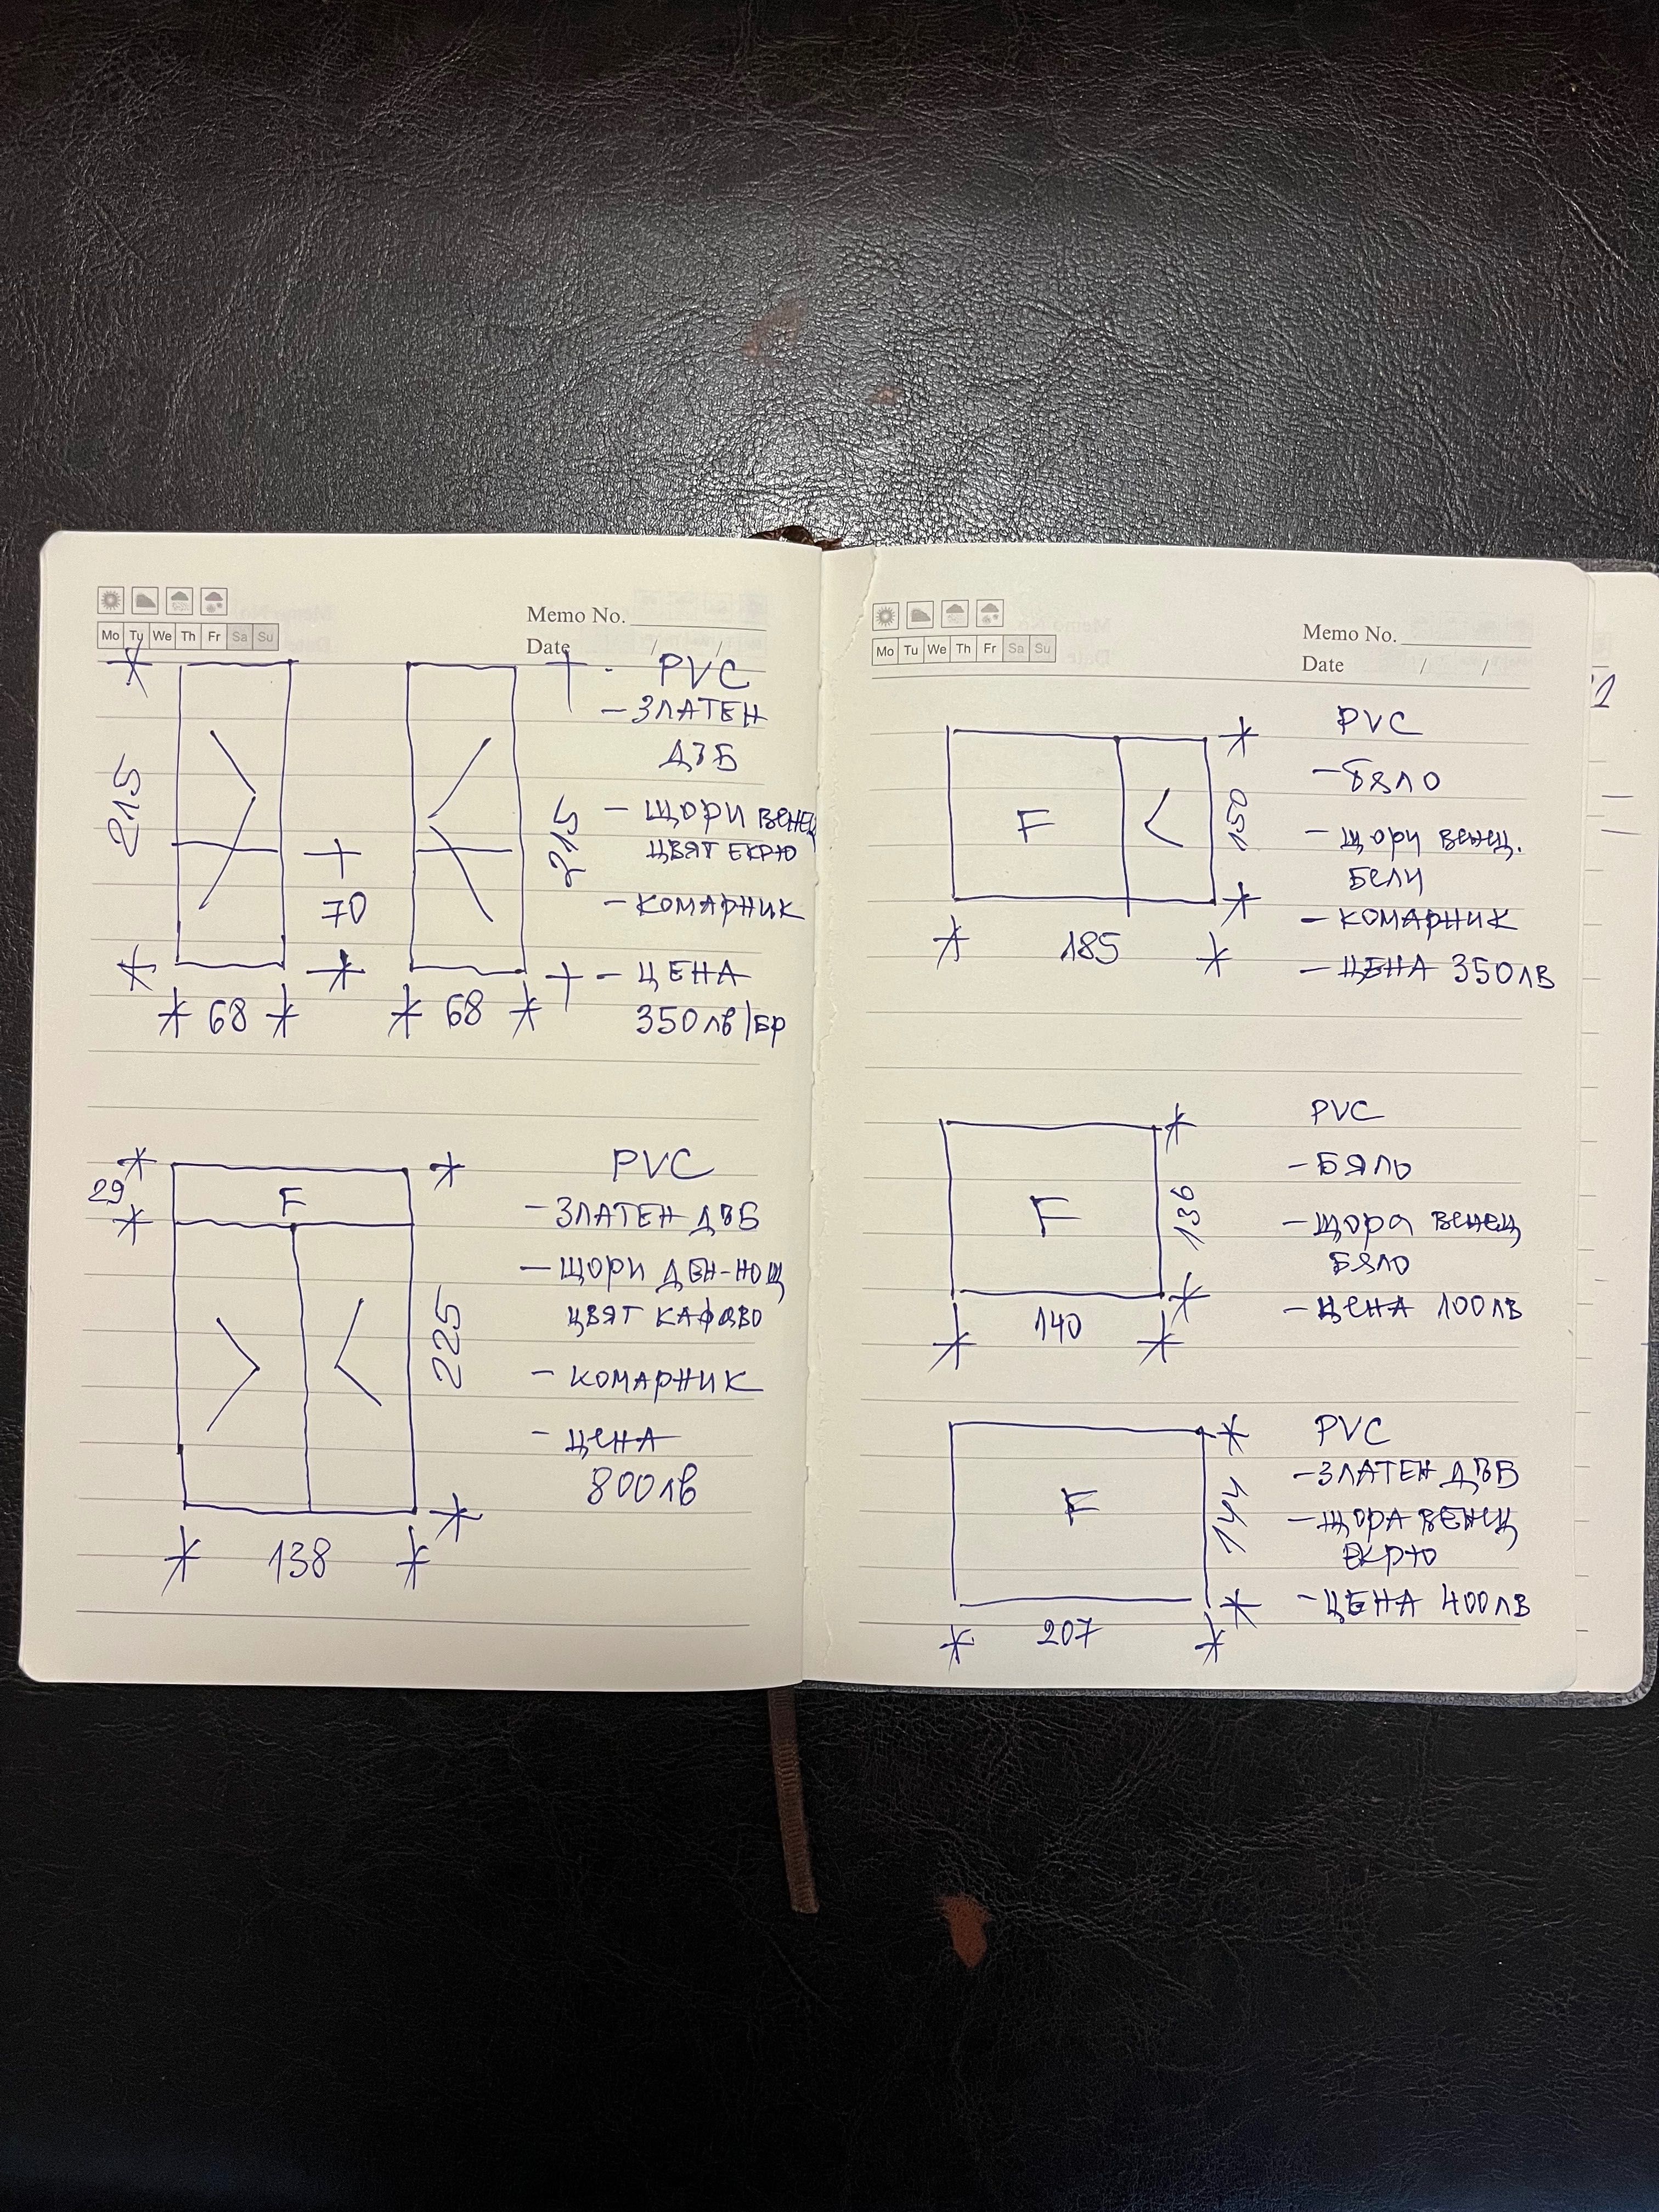 Mo Tu We Th Fr Sa Su
Memo No.
Date / /
215
70
68
68
215
- PVC
- ЗЛАТЕН
ДЪБ
- ЩОРИ ВЕНЕЦ
ЦВЯТ ЕКРЮ
- КОМАРНИК
- ЦЕНА
350лв/бр
29
F
225
138
PVC
- ЗЛАТЕН ДЪБ
- ЩОРИ ДЕН-НОЩ
ЦВЯТ КАФЯВО
- КОМАРНИК
- ЦЕНА
800лв
Mo Tu We Th Fr Sa Su
Memo No.
Date / /
F
150
185
PVC
- БЯЛО
- ЩОРИ ВЕНЕЦ.
БЕЛИ
- КОМАРНИК
- ЦЕНА 350ЛВ
F
136
140
PVC
- БЯЛО
- ЩОРА ВЕНЕЦ
БЯЛО
- ЦЕНА 100ЛВ
F
144
207
PVC
- ЗЛАТЕН ДЪБ
- ЩОРА ВЕНЕЦ
ЕКРЮ
- ЦЕНА 400ЛВ